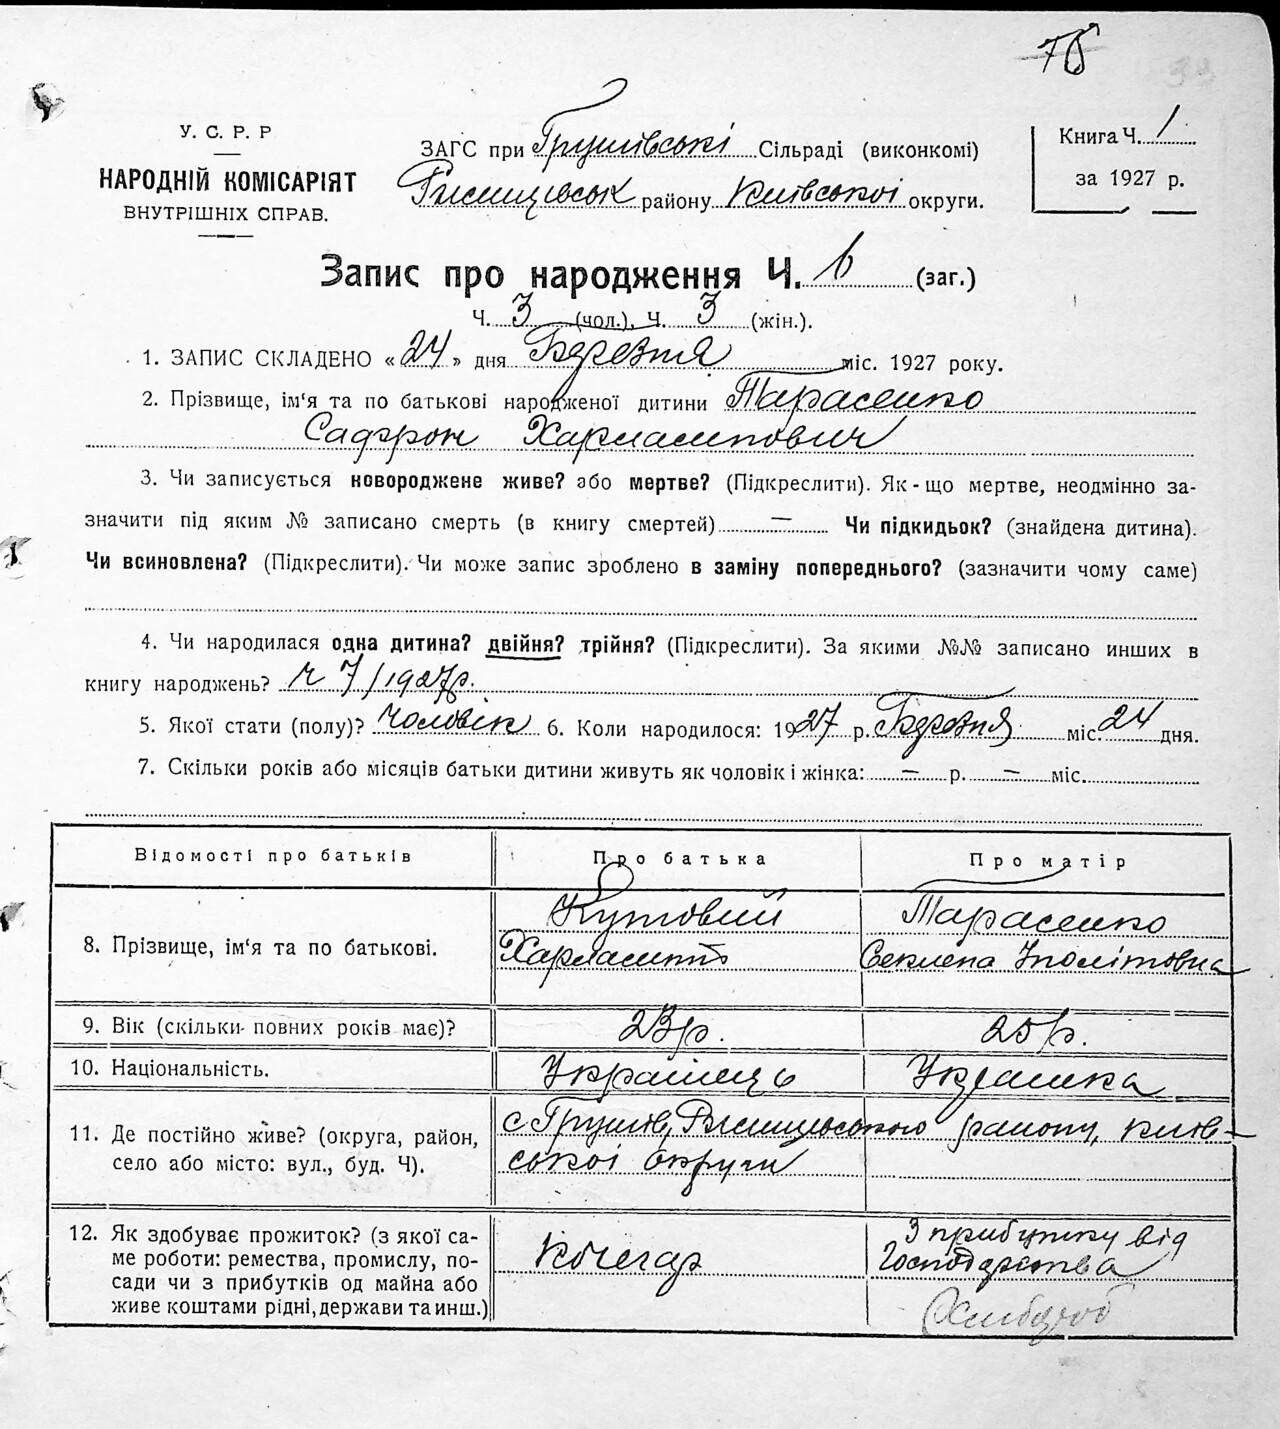 76
У. С. Р. Р
НАРОДНІЙ КОМІСАРІЯТ
ВНУТРІШНІХ СПРАВ.
ЗАГС при Грушівські Сільраді (виконкомі)
Ржищівськ району Київської округи.
Книга Ч. 1
за 1927 р.
Запис про народження Ч. 6 (заг.)
Ч. 3 (чол.), Ч. 3 (жін.).
1. ЗАПИС СКЛАДЕНО «24» дня Березня міс. 1927 року.
2. Прізвище, ім'я та по батькові народженої дитини Тарасенко
Сафрон Харлампович
3. Чи записується новороджене живе? або мертве? (Підкреслити). Як-що мертве, неодмінно за-
значити під яким № записано смерть (в книгу смертей) — Чи підкидьок? (знайдена дитина).
Чи всиновлена? (Підкреслити). Чи може запис зроблено в заміну попереднього? (зазначити чому саме)
4. Чи народилася одна дитина? двійня? трійня? (Підкреслити). За якими №№ записано инших в
книгу народжень? ч 7/1927р.
5. Якої стати (полу)? Чоловік 6. Коли народилося: 1927 р. Березня міс. 24 дня.
7. Скільки років або місяців батьки дитини живуть як чоловік і жінка: — р. — міс.
Відомості про батьків Про батька Про матір
8. Прізвище, ім'я та по батькові. Кутовий Харламппт Тарасенко Секлета Іполітовна
9. Вік (скільки повних років має)? 23 р. 25 р.
10. Національність. Українець Українка
11. Де постійно живе? (округа, район,
село або місто: вул., буд. Ч).
с Грушів, Ржищівського району, Київ-
ської округи
12. Як здобуває прожиток? (з якої са-
ме роботи: ремества, промислу, по-
сади чи з прибутків од майна або
живе коштами рідні, держави та инш.)
Кочегар
З прибутку від
Господарства
Хлібороб